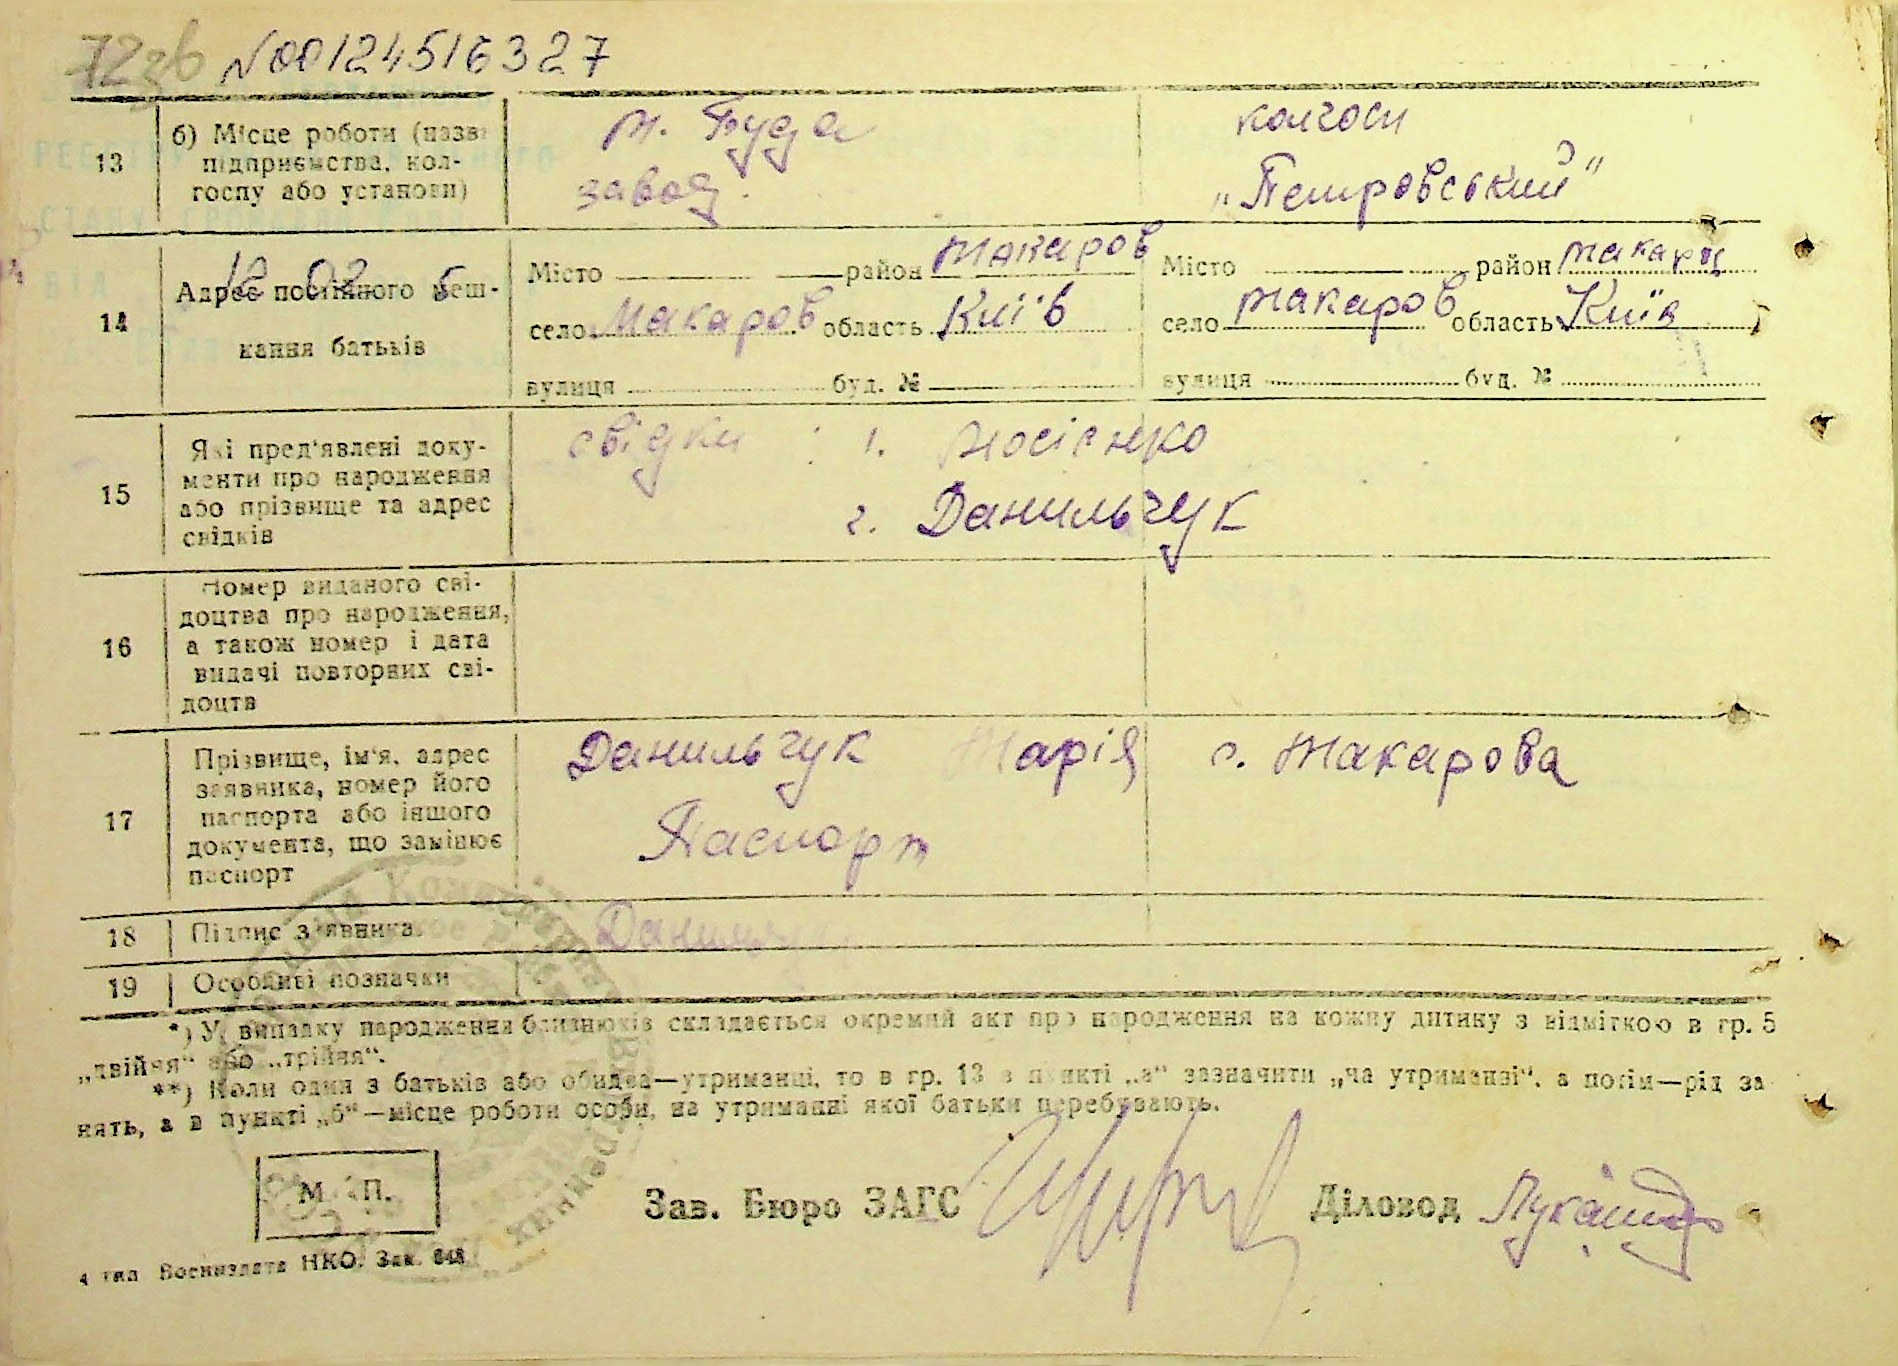 72зв №00124516327
13
б) Місце роботи (назва
підприємства, кол-
госпу або установи)
м. Буда
завод.
колгосп
„Петровський“
14
Адрес постійного меш-
кання батьків
Місто район Макаров
село Макаров область Київ
вулиця буд. №
Місто район Макаров
село Макаров область Київ
вулиця буд. №
15
Які пред'явлені доку-
менти про народження
або прізвище та адрес
свідків
свідки : 1. Мосієнко
2. Данильчук
16
Номер виданого сві-
доцтва про народження,
а також номер і дата
видачі повторних сві-
доцтв
17
Прізвище, ім'я, адрес
заявника, номер його
паспорта або іншого
документа, що замінює
паспорт
Данильчук Марія с. Макарова
Паспорт
18 Підпис заявника
19 Особливі позначки
*) У випадку народження близнюків складається окремий акт про народження на кожну дитину з відміткою в гр. 5
„двійня“ або „трійня“.
**) Коли один з батьків або обидва—утриманці, то в гр. 13 в пункті „а“ зазначити „на утриманні“, а потім—рід за
нять, а в пункті „б“—місце роботи особи, на утриманні якої батьки перебувають.
М. П.
Зав. Бюро ЗАГС
Діловод
4 тип Воениздата НКО. Зак. 648